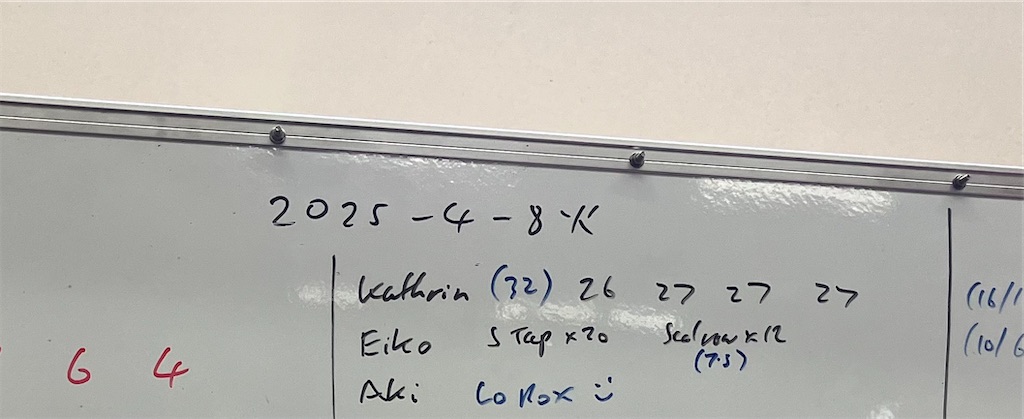 2025-4-8火
Kathrin (32) 26 27 27 27
(16/1
Eiko S Tap x20 Seal row x12
(7.5)
(10/6
6 4
Aki